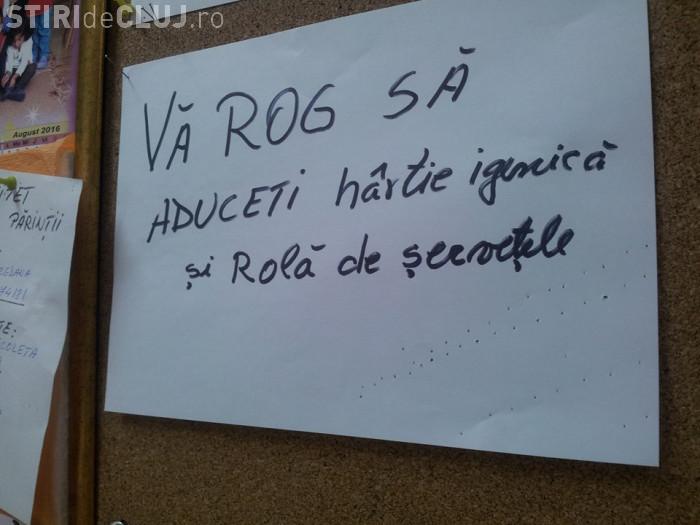 ȘTIRIdeCLUJ.ro
August 2016
PĂRINȚII
VĂ ROG SĂ
ADUCEȚI hârtie igenică
și Rolă de șervețele